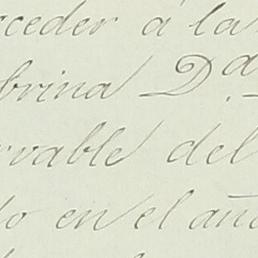 cceder á la
brina D.ª
rvable del
to en el año